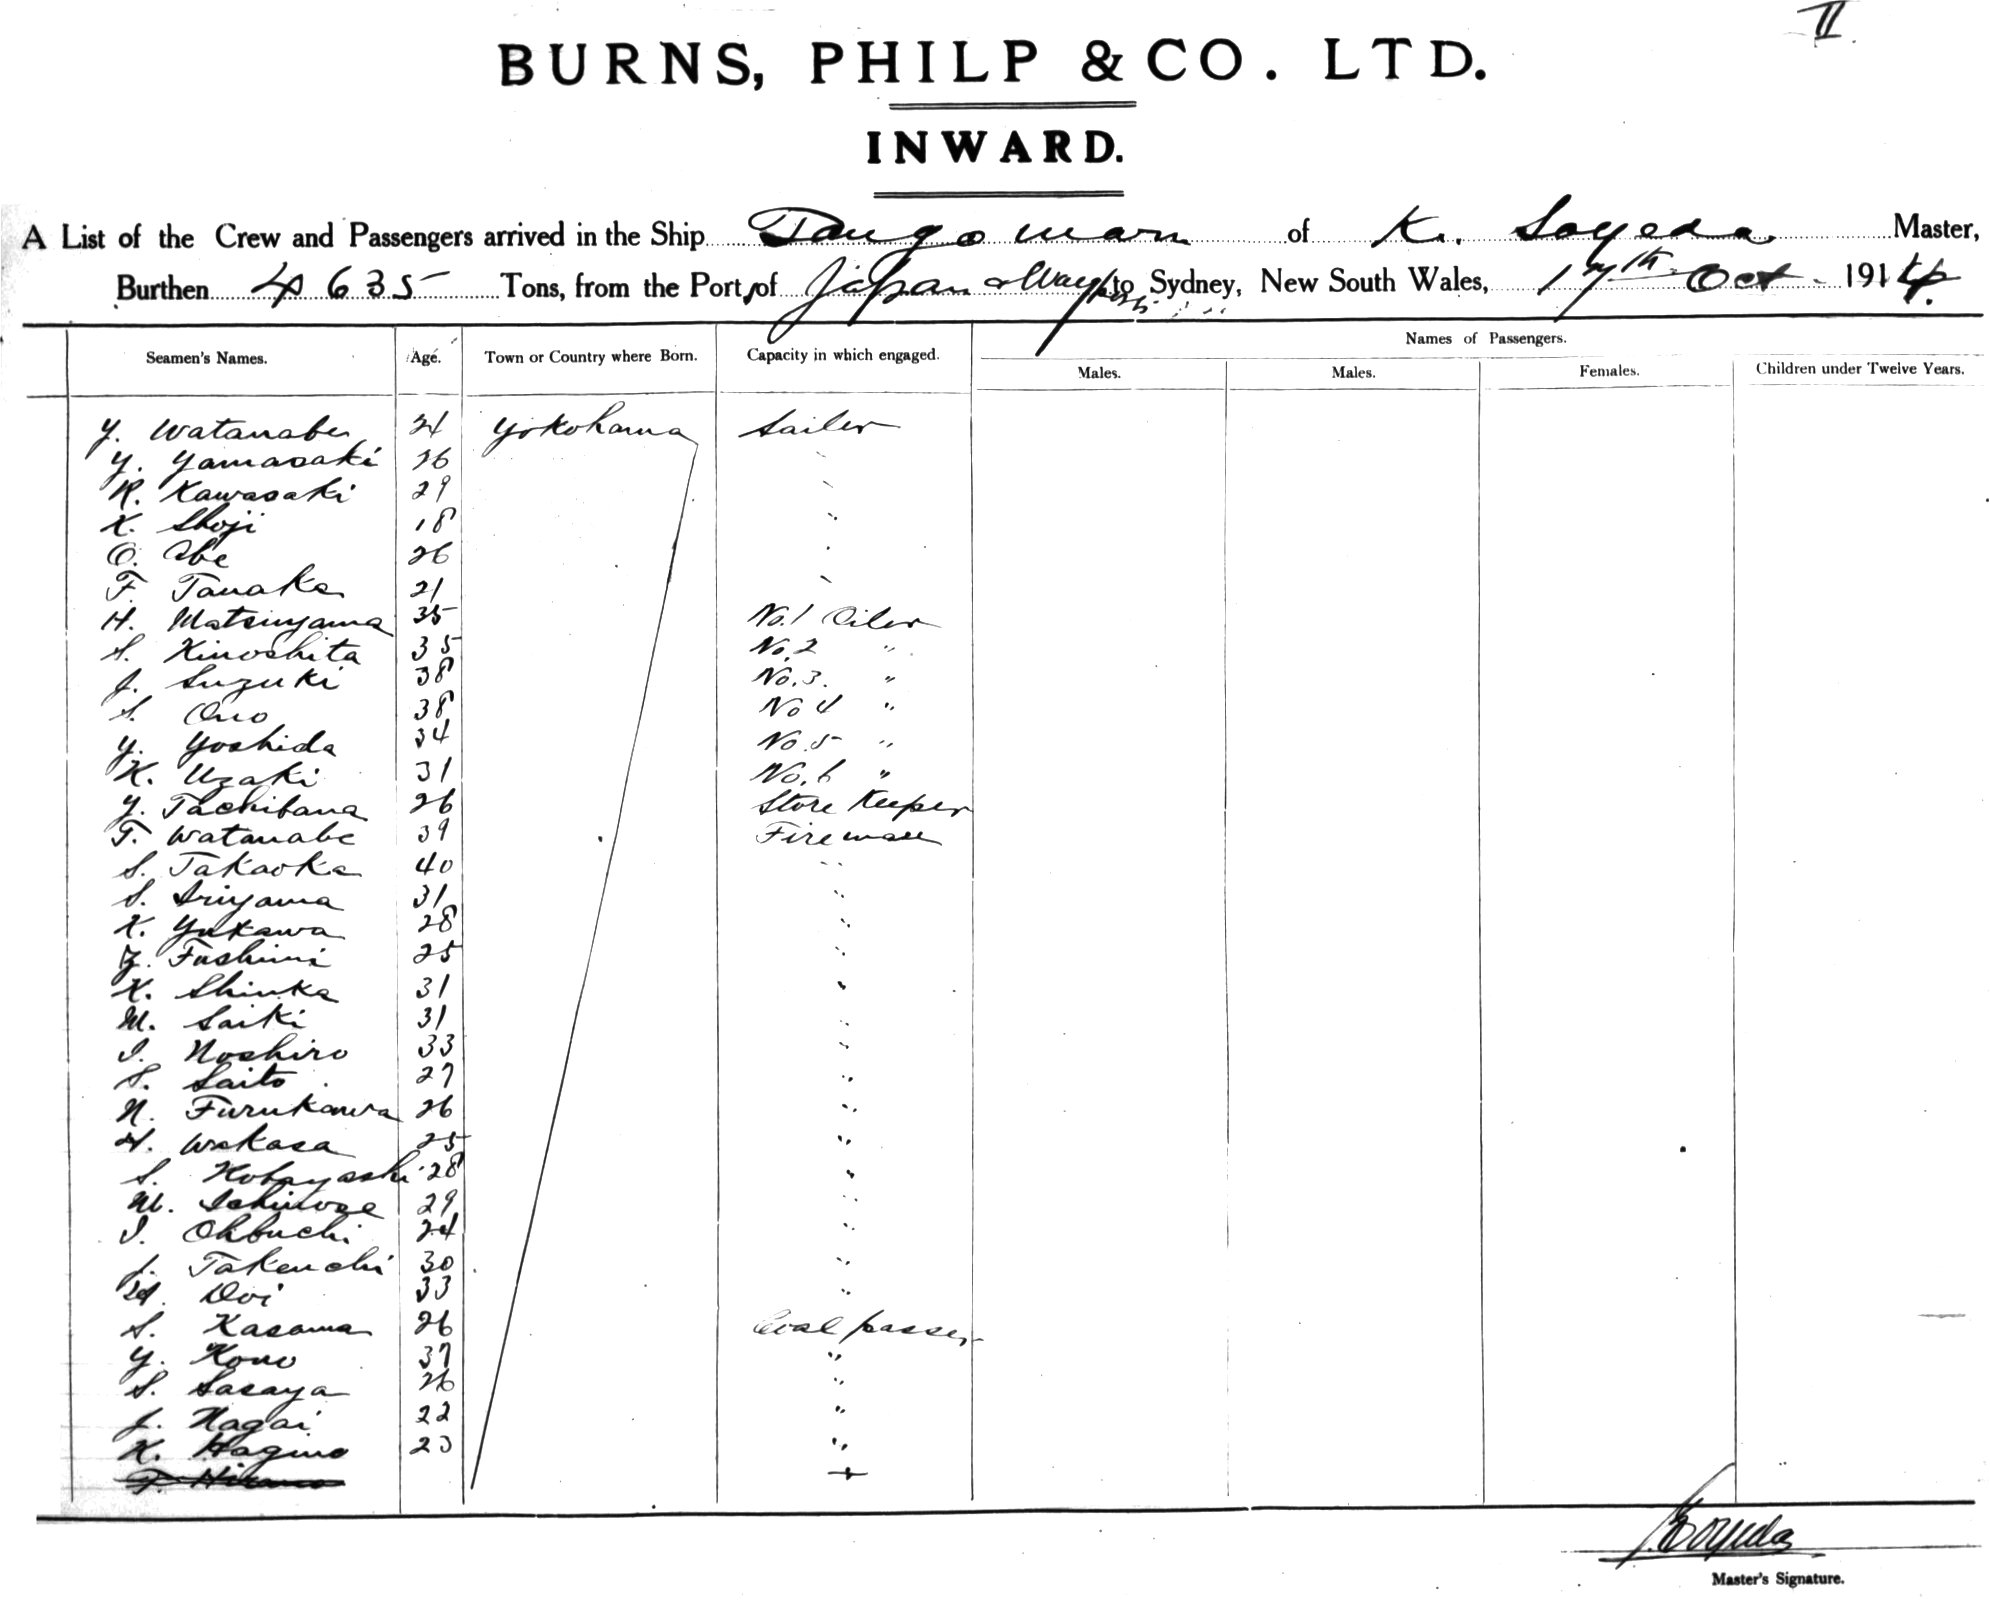 II
BURNS, PHILP & CO. LTD.
INWARD.
A List of the Crew and Passengers arrived in the Ship Tango maru of K. Soyeda Master,
Burthen 4635 Tons, from the Port, of Japan & Way to Sydney, New South Wales, 17th Oct. 1914.
Names of Passengers.
Seamen's Names. Age. Town or Country where Born. Capacity in which engaged. Males. Males. Females. Children under Twelve Years.
Y. Watanabe 24 Yokohama Sailer
Y. Yamasaki 26 "
K. Kawasaki 29 "
K. Shoji 18 "
O. Abe 26 "
F. Tanaka 21 "
H. Matsuyama 35 No.1 Oiler
S. Kinoshita 35 No.2 "
J. Suzuki 38 No.3. "
S. Ono 38 No 4 "
Y. Yoshida 34 No.5 "
K. Uzaki 31 No.6 "
Y. Tachibana 26 Store Keeper
T. Watanabe 39 Fireman
S. Takaoka 40 "
S. Iriyama 31 "
K. Yukawa 28 "
Z. Fushimi 25 "
K. Shinka 31 "
M. Saiki 31 "
I. Noshiro 33 "
S. Saito 27 "
N. Furukawa 26 "
H. Wakasa 25 "
S. Kobayashi 28 "
M. Ichinose 29 "
I. Ohbuchi 24 "
J. Takeuchi 30 "
Doi 33 "
S. Kasama 26 Coal passer
Y. Kono 37 "
S. Sasaya 26 "
J. Nagai 22 "
K. Hagino 23 "
T. Hirano
K. Soyeda
Master's Signature.